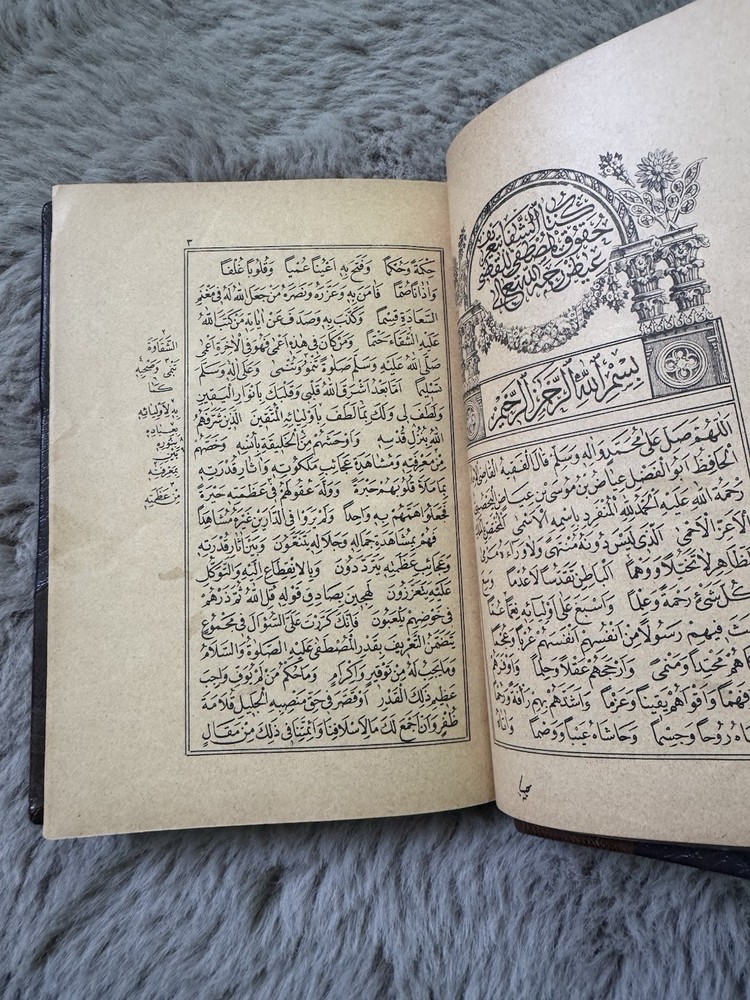 كتاب الشفا بتعريف
حقوق المصطفى للقاضى
عياض رحمه الله تعالى
بِسْمِ اللّٰهِ الرَّحْمٰنِ الرَّحِيمِ
اللهم صل على محمد واله وسلم قال الفقيه القاضى
الحافظ ابو الفضل عياض بن موسى بن عياض اليحصبى
رحمة الله عليه الحمد لله المنفرد باسمه الاسمى المختص
الاعز الاحمى الذى ليس دونه منتهى ولا وراءه مرمى
الظاهر لا تخيلا ووهما الباطن تقدسا لا عدما وسع
كل شئ رحمة وعلما واسبغ على اوليائه نعما عما
فيهم رسولا من انفسهم انفسهم عربا وعجما
محتدا ومنمى وارجحهم عقلا وحلما واوفرهم
وفهما واقواهم يقينا وعزما واشدهم بهم رأفة ورحما
روحا وجسما وحاشاه عيبا ووصما واتاه
٣
حكمة وحكما وفتح به اعينا عميا وقلوبا غلفا
واذانا صما فامن به وعزره ونصره من جعل الله له فى مغنم
السعادة قسما وكذب به وصدف عن اياته من كتب الله
عليه الشقاء حتما ومن كان فى هذه اعمى فهو فى الاخرة اعمى
صلى الله عليه وسلم صلوة تنمو وتنمى وعلى اله وسلم
تسليما اما بعد اشرق الله قلبى وقلبك بانوار اليقين
ولطف لى ولك بما لطف باوليائه المتقين الذين شرفهم
الله بنزل قدسه واوحشهم من الخليقة بانسه وخصهم
من معرفته ومشاهدة عجائب ملكوته واثار قدرته
بما ملأ قلوبهم حبرة ووله عقولهم فى عظمته حيرة
فجعلوا همهم به واحدا ولم يروا فى الدارين غيره مشاهدا
فهم بمشاهدة جماله وجلاله يتنعمون وبين اثار قدرته
وعجائب عظمته يترددون وبالانقطاع اليه والتوكل
عليه يتعززون لهجين بصادق قوله قل الله ثم ذرهم
فى خوضهم يلعبون فانك كررت على السؤال فى مجموع
يتضمن التعريف بقدر المصطفى عليه الصلاة والسلام
وما يجب له من توقير واكرام وما حكم من لم يوف واجب
عظيم ذلك القدر او قصر فى حق منصبه الجليل قلامة
ظفر وان اجمع لك ما لاسلافنا وائمتنا فى ذلك من مقال
الشقاوة
تنمى
كما
به لاوليائه
بعباده
بمعرفته
من عظمته